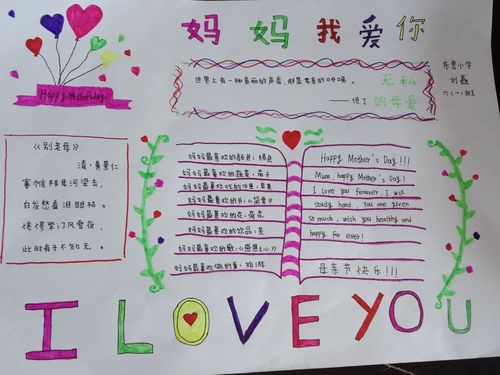 妈妈我爱你
Happy Mother's day
世界上有一种美丽的声音，那是母亲的呼唤。
——但丁
无私
的母爱
东营小学
刘鑫
六（一）班
《别老母》
清·黄景仁
搴帷拜母河梁去，
白发愁看泪眼枯。
惨惨柴门风雪夜，
此时有子不如无。
妈妈最喜欢的颜色：绿色
妈妈最喜欢的
妈妈最喜欢吃的水果：
妈妈最喜欢的书：《简爱》
妈妈最喜欢的花：荷花
妈妈最喜欢的饮品：茶
妈妈最喜欢的歌：《感恩的心》
妈妈最喜欢做的事：
Happy Mother's Day!!!
Mum, happy Mother's Day!
I love you ferever. I will
study hard, You are given
so much, wish you healthy and
happy for ever!
母亲节快乐!!!
I LOVE YOU